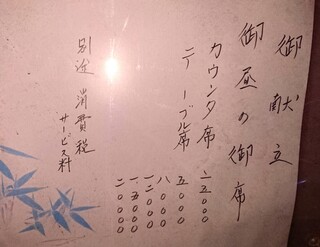 御献立
御昼の御席
カウンタ席
テーブル席
五〇〇〇
八〇〇〇
一二〇〇〇
一五〇〇〇
二〇〇〇〇
別途 消費税
サービス料